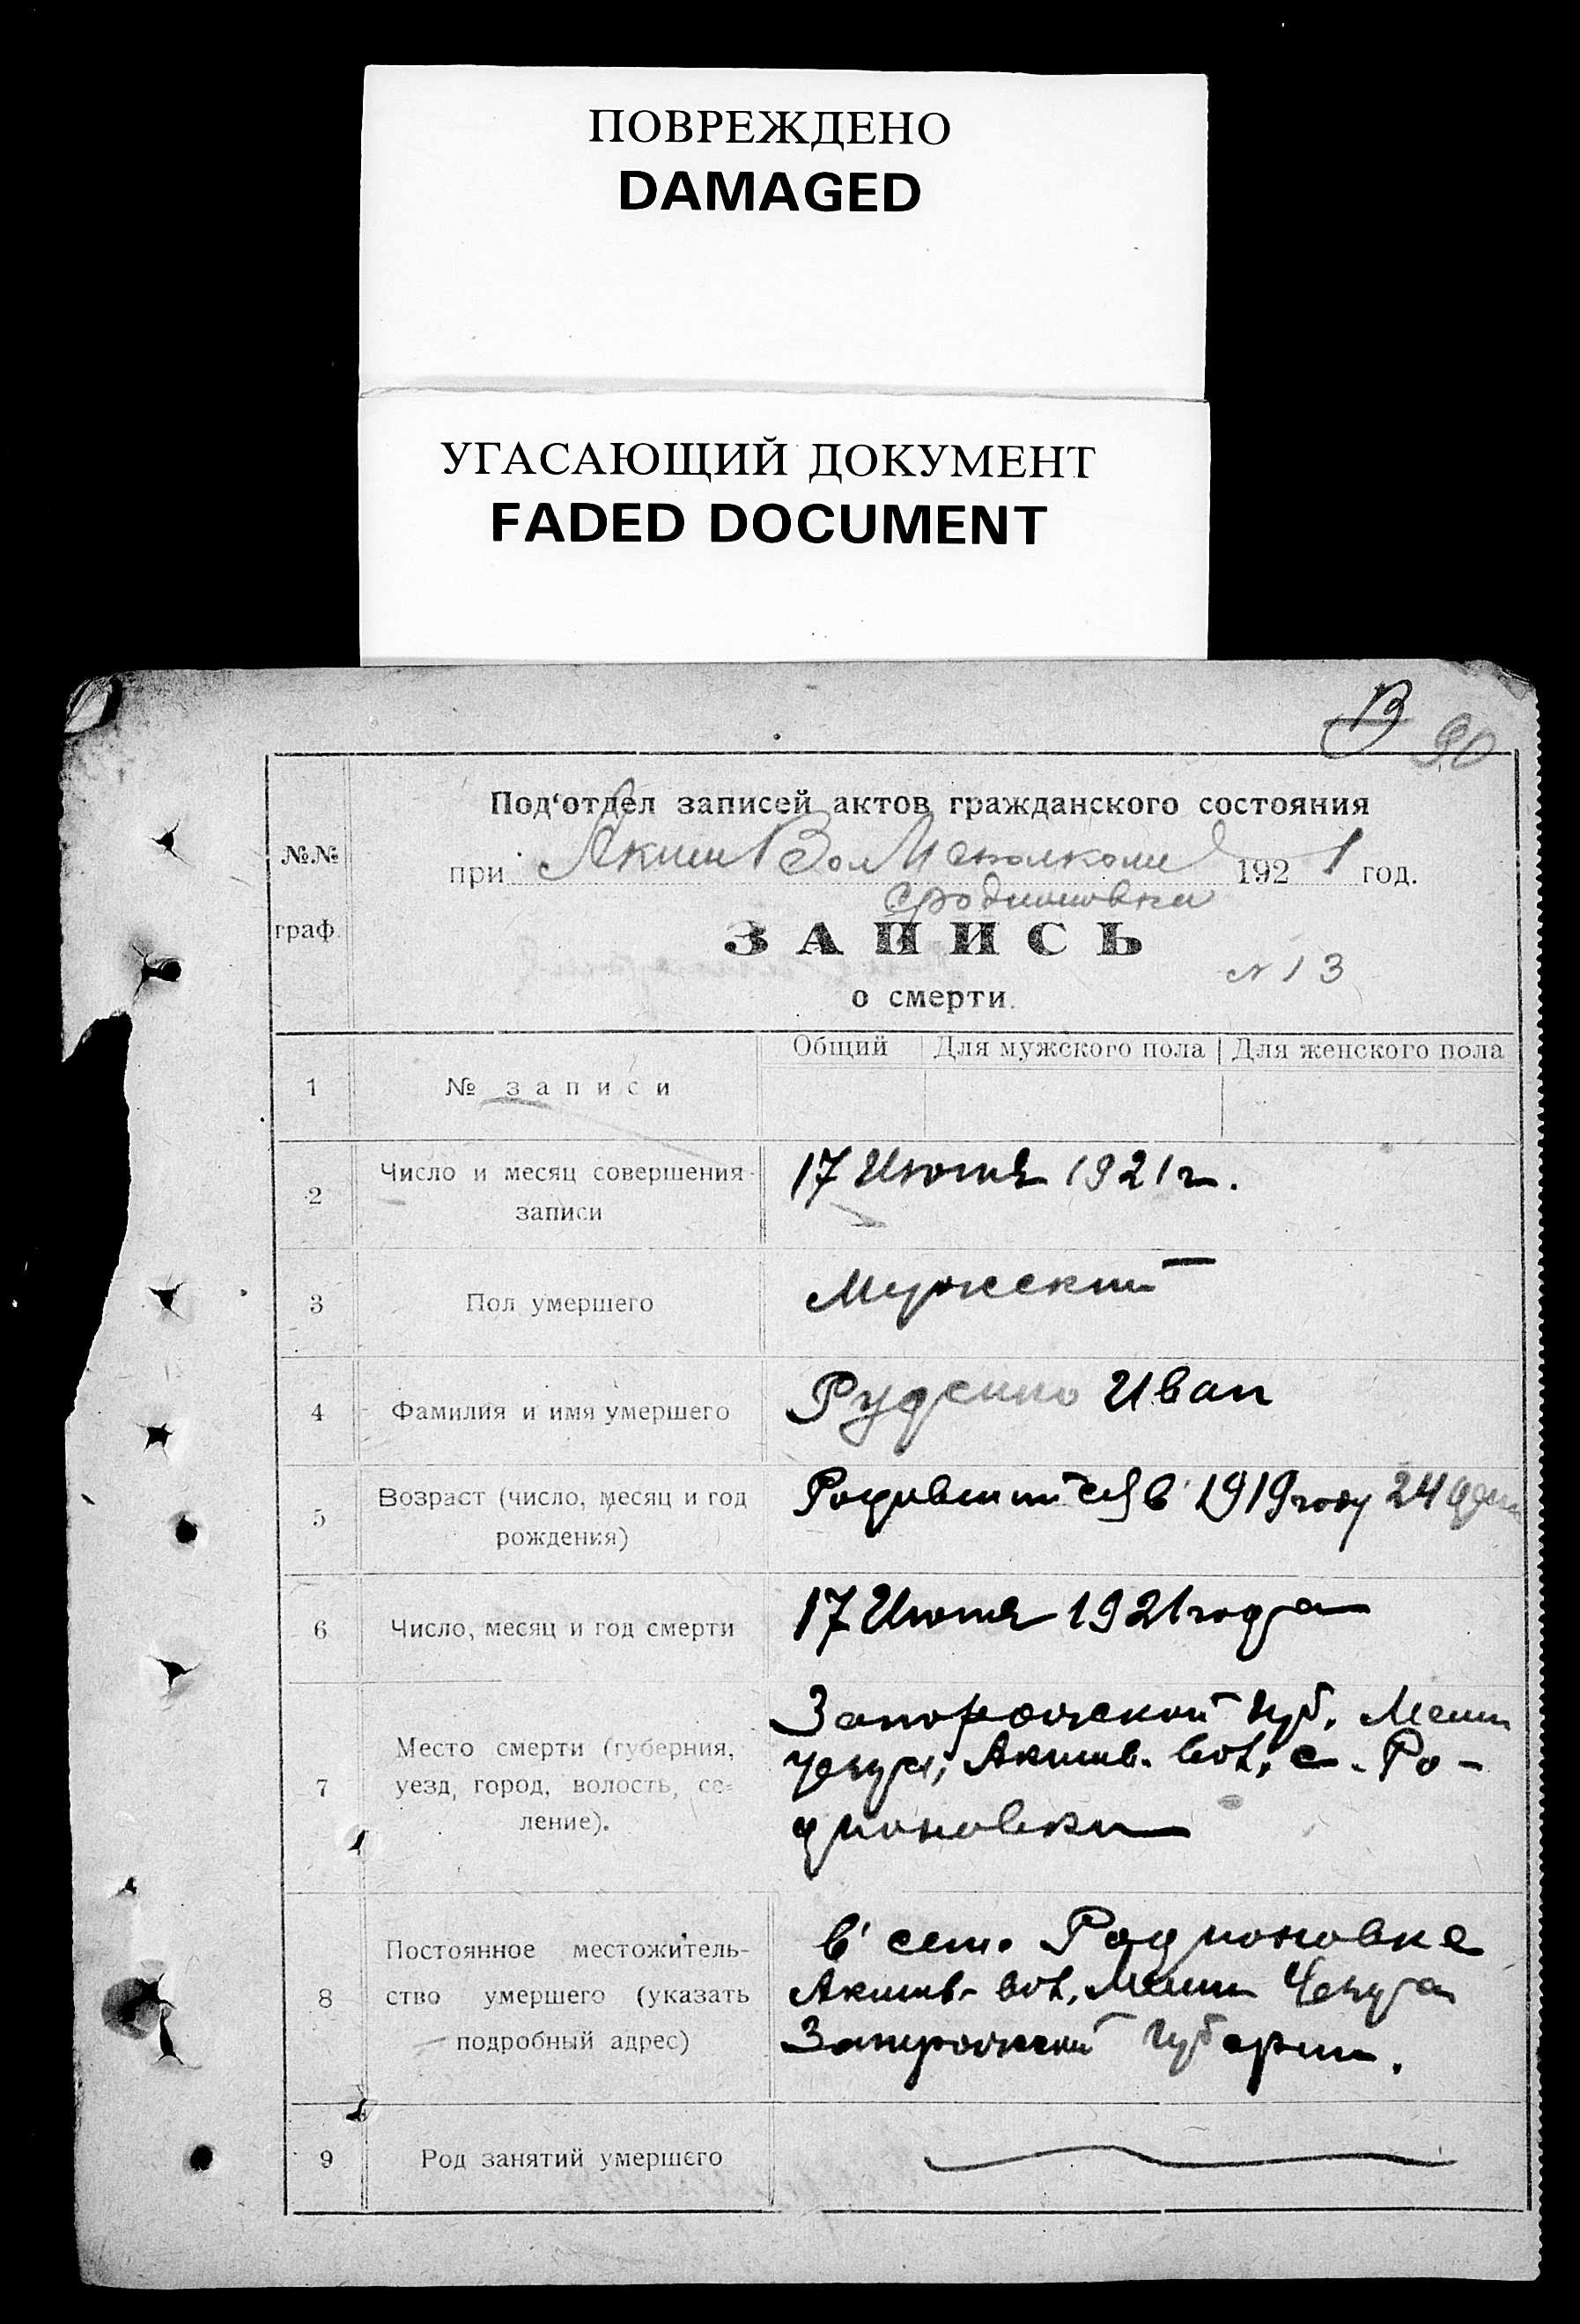 ПОВРЕЖДЕНО
DAMAGED
УГАСАЮЩИЙ ДОКУМЕНТ
FADED DOCUMENT
В 90
Под‘отдел записей актов гражданского состояния
№.№
при Аким Вол Исполкоме 1921 год.
с родионовки
граф.
ЗАПИСЬ
N 13
о смерти.
Общий Для мужского пола Для женского пола
1 № записи
2 Число и месяц совершения
записи
17 Июля 1921 г.
3 Пол умершего
Мужеский
4 Фамилия и имя умершего
Руденко Иван
5 Возраст (число, месяц и год
рождения)
Родившийся в 1919 году 24
6 Число, месяц и год смерти
17 Июля 1921 года
7 Место смерти (губерния,
уезд, город, волость, се-
ление).
Запорожской губ. Мели
Акимв. вол. с. Ро-
дионовки
8 Постоянное местожитель-
ство умершего (указать
подробный адрес)
в сел. Родионовке
Акимв. вол. Мели
Запорожской губернии.
9 Род занятий умершего